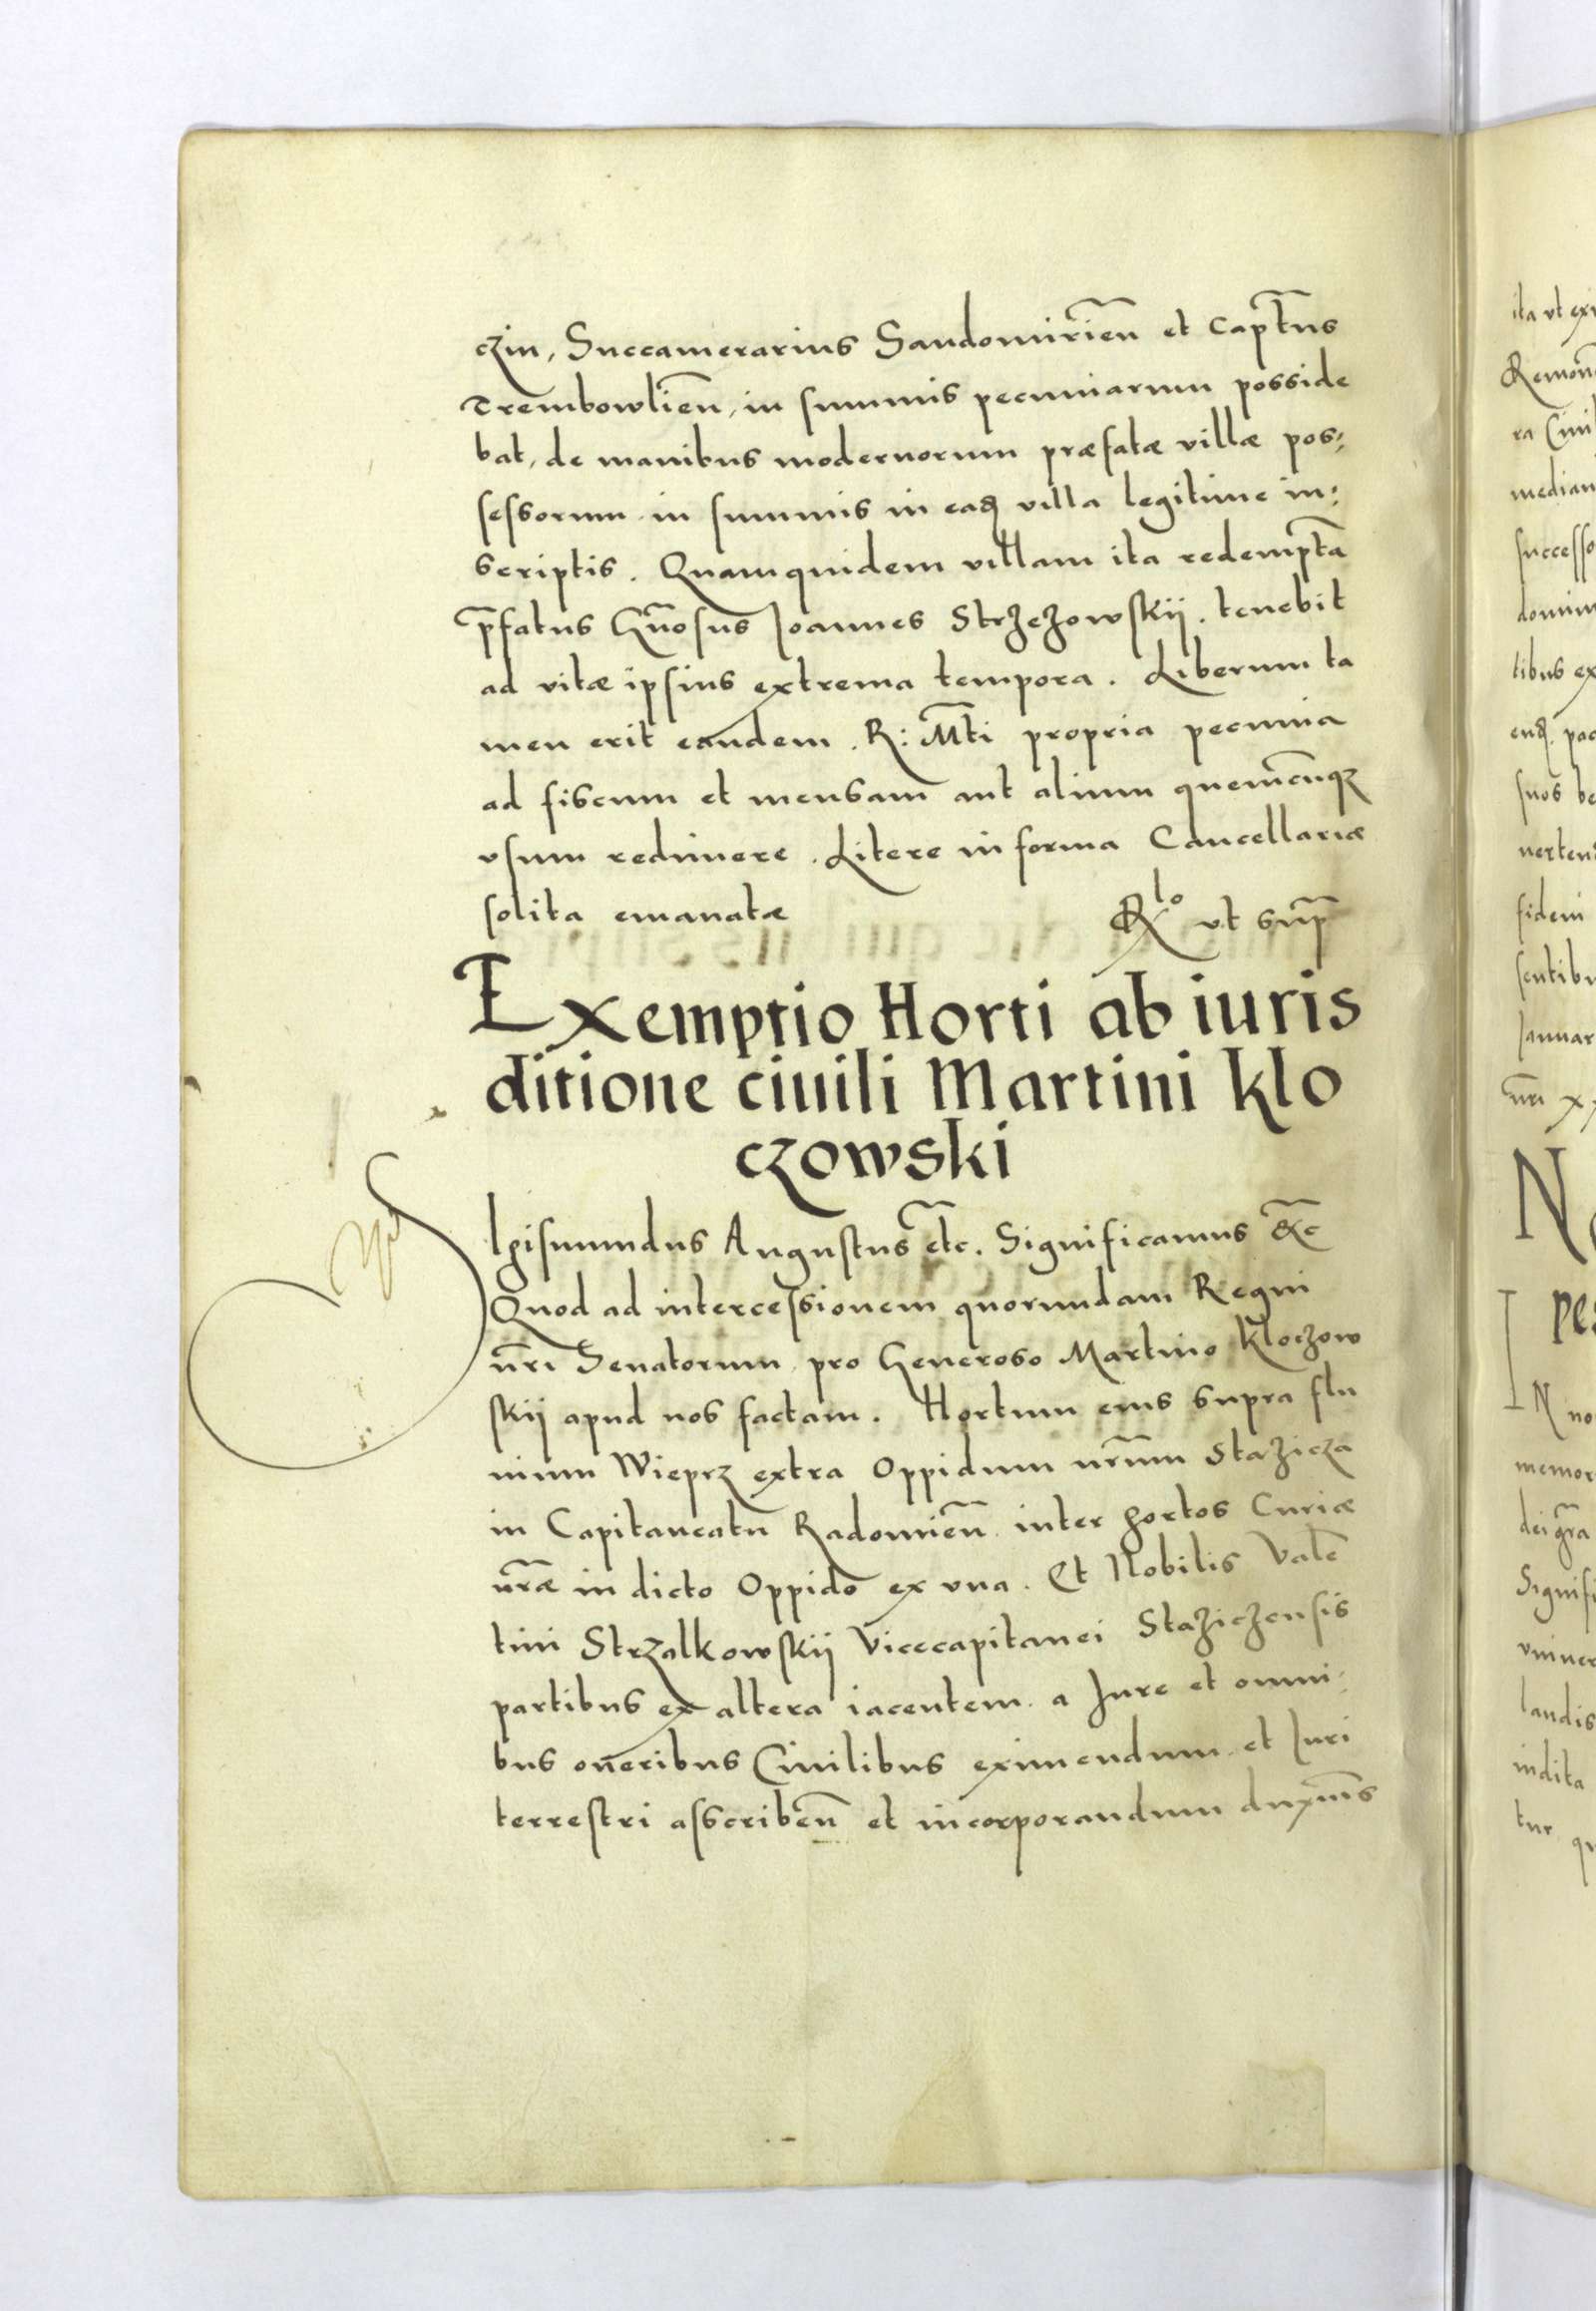 czin, Succamerarius Sandomirień et Capt̃nus
Trembowlień, in summis pecuniarum posside
bat, de manibus modernorum præfatæ villæ pos:
sessorum in summis in ead villa legitime in:
scriptis. Quamquidem villam ita redempt̃a
p̃fatus Gñosus Joannes Strzezowskij. tenebit
ad vitæ ipsius extrema tempora. Liberum ta
men erit eandem. R: M̃ti propria pecunia
ad fiscum et mensam aut alium quemcũqz
vsum redimere. Litere in forma Cancellariæ
solita emanatæ Rlo vt sup̃
Exemptio Horti ab iuris
ditione ciuili Martini Klo
czowski
Sigismundus Augustus etc̃. Significamus &c̃
Quod ad intercessionem quorundam Regni
ñri Senatorum pro Generoso Martino Kloczow
skij apud nos factam. Hortum eius supra flu
uium Wieprz extra Oppidum nr̃um Stazicza
in Capitaneatu Radomień inter hortos Curiæ
nr̃æ in dicto Oppido ex vna. Et Nobilis Valẽ
tini Strzalkowskij Vicecapitanei Staziczensis
partibus ex altera iacentem a Jure et omni:
bus oneribus Ciuilibus eximendum et Iuri
terrestri asscribeñ et incorporandum duxim̃s
ita vt exi
ra Ciuil
median
successo
domin
tibus ex
suos be
verten
fidem
sentibu
Januar
ñri xx
N
pe
N no
memor
dei gr̃a
Signifi
vniuer
landis
indita
tur qu